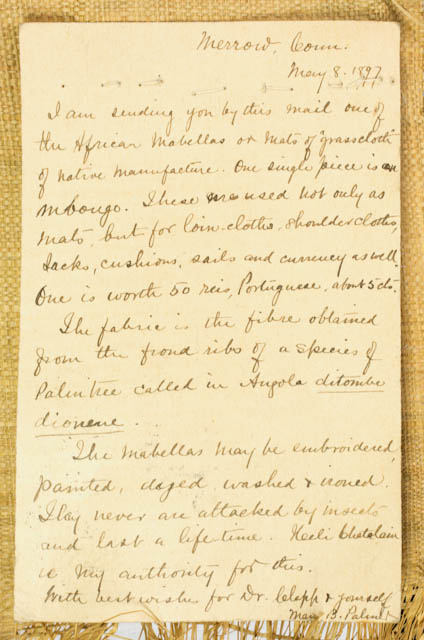 Merrow, Conn.
May 8. 1897
I am sending you by this mail one of
the African Mabellas or Mats of "grasscloth"
of native manufacture. One single piece is an
mbongo. These are used not only as
mats, but for loin-cloths, shoulder cloths,
sacks, cushions, sails and currency as well.
One is worth 50 reis, Portuguese, about 5 cts.
The fabric is the fibre obtained
from the frond ribs of a species of
Palm tree called in Angola ditombe
dionene.
The Mabellas may be embroidered,
painted, dyed, washed & ironed.
They never are attacked by insects
and last a life-time. Heli Chatelain
is my authority for this.
With best wishes for Dr. Clapp & yourself
Mary B. Palmer